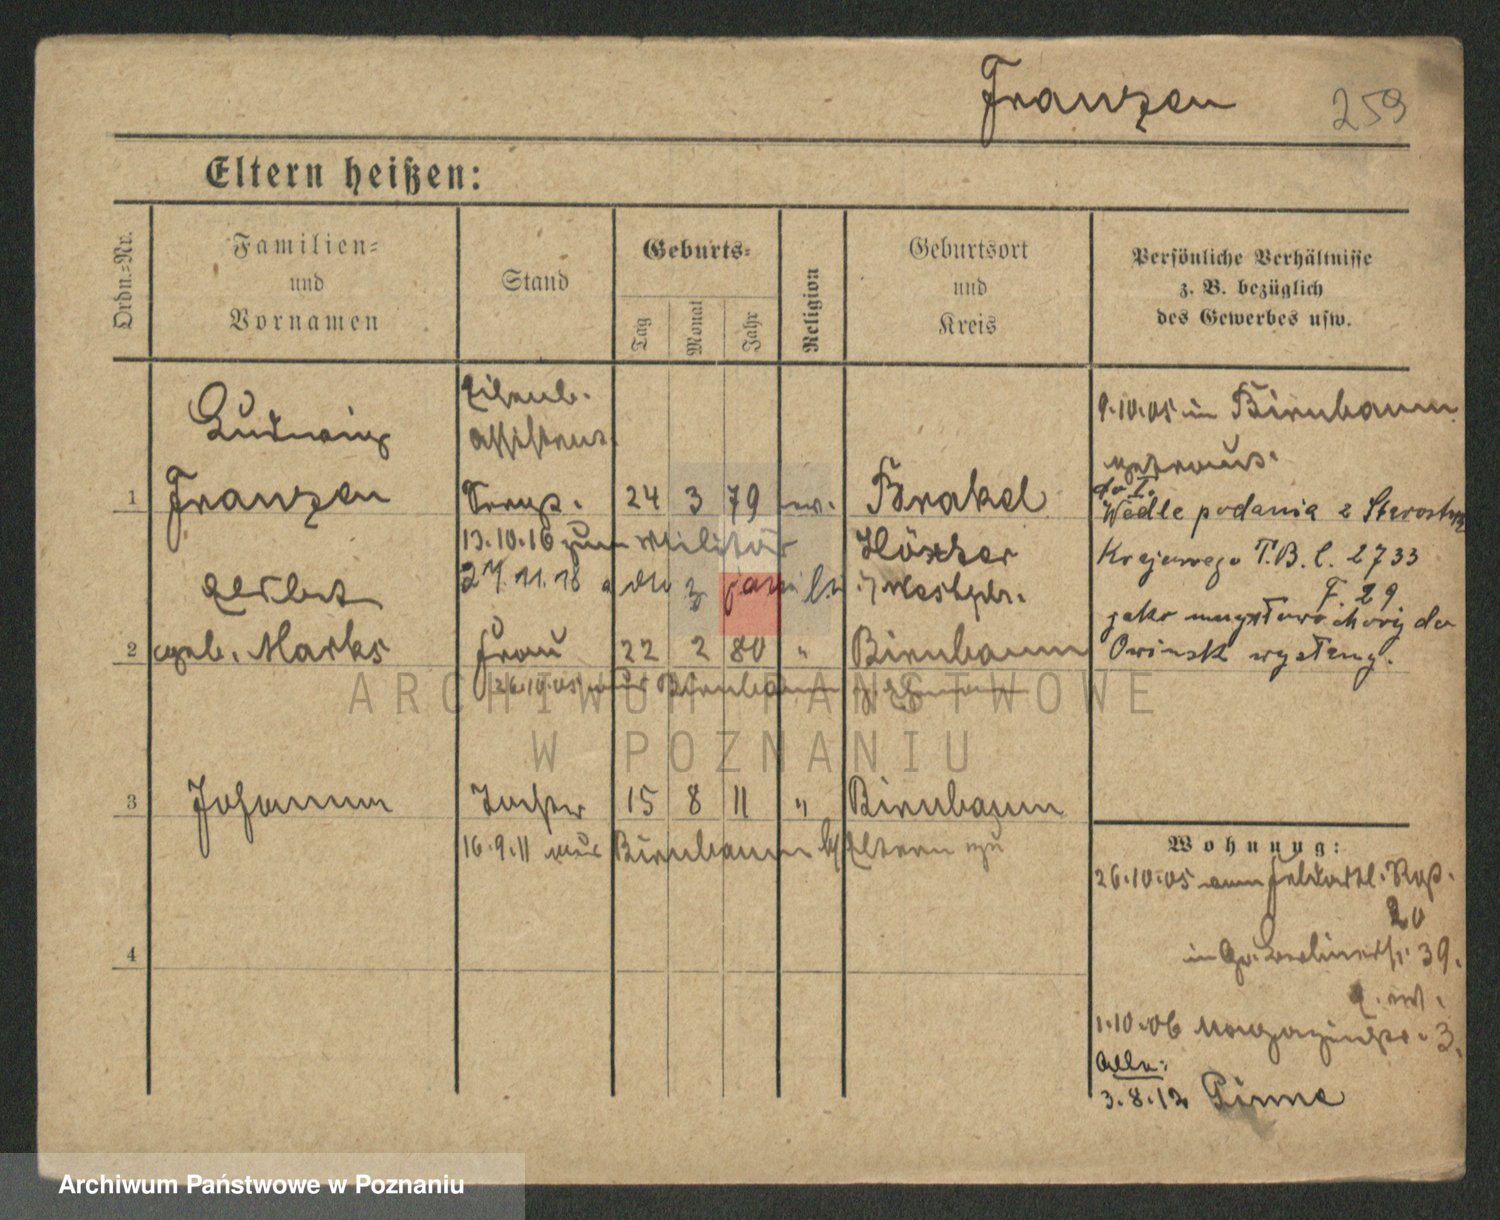 Franzen 259
Eltern heißen:
Ordn.-Nr.
Familien-
und
Vornamen
Stand
Geburts-
Tag
Monat
Jahr
Religion
Geburtsort
und
Kreis
Persönliche Verhältnisse
z. B. bezüglich
des Gewerbes usw.
Eisenb.
Ludwig assistent
1 Franzen 24 3 79 ev. Brakel
13.10.16 zum Militär Höxter
27.11.18
2 geb. Marks Frau 22 2 80 " Birnbaum
26.10.05 Birnbaum
3 Johanna Tochter 15 8 11 " Birnbaum
16.9.11 aus Birnbaum Eltern zu
4
9.10.05 in Birnbaum
getraut.
Wedle podania z Starostwa
Krajowego T.B. l. 2733
F. 29
jako
Owinsk wysłany.
Wohnung:
26.10.05 vom
20
in Gr. Berlinerstr. 39.
1.10.06 Magazinstr. 3.
3.8.12 Pinne
ARCHIWUM PAŃSTWOWE
W POZNANIU
Archiwum Państwowe w Poznaniu